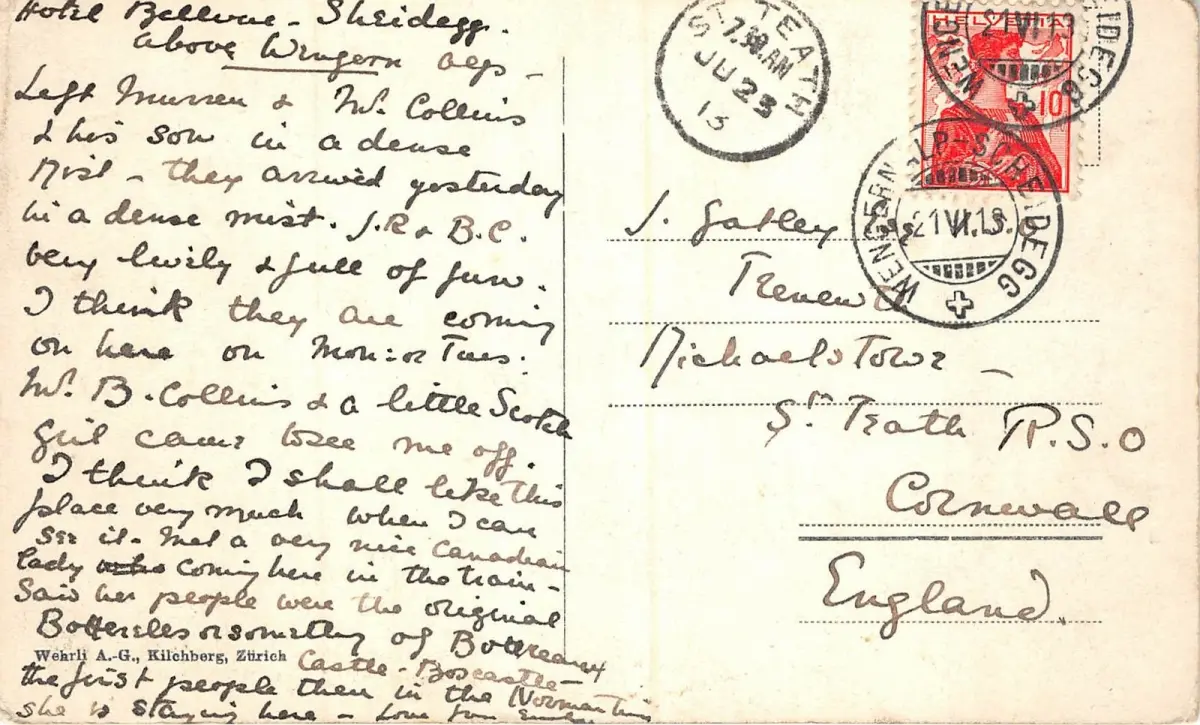 Hotel Bellevue - Sheidegg.
above Wengern alps -
Left Murren & Mr. Collins
& his son in a dense
Mist - they arrived yesterday
in a dense mist. J.R & B.C.
very lively & full of fun.
I think they are coming
on here on Mon: or Tues:
Mr. B. Collins & a little Scotch
girl came to see me off.
I think I shall like this
place very much when I can
see it. Met a very nice Canadian
lady who coming here in the train -
Said her people were the original
Bottereles or something of Bottreaux
Castle - Boscastle -
the first people then in the Norman time
she is staying here - Love from
Wehrli A.-G., Kilchberg, Zürich
ST TEATH
7.30 AM
JU 23
13
HELVETIA
10
WENGERNALP-SCHEIDEGG
21 VI 13
WENGERNALP-SCHEIDEGG
21 VI 13
J. Gatley
Michaelstow -
St. Teath R.S.O
Cornwall
England.